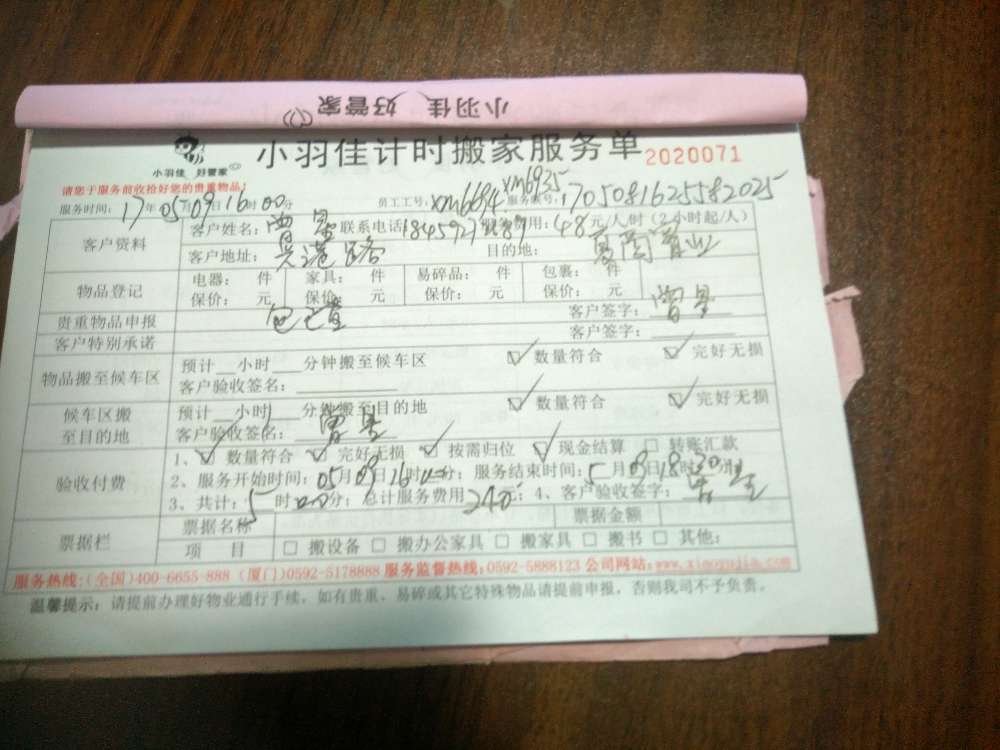 小羽佳 好管家
小羽佳 好管家
小羽佳计时搬家服务单 2020071
请您于服务前收拾好您的贵重物品！
服务时间：17年05月09日16时00分 员工工号：xm6694 xm6935 服务账号：1705081625582025
客户资料 客户姓名：曾 联系电话 服务费用：48元/人/时（2小时起/人）
客户地址：兴港路 目的地：夏商置业
物品登记 电器： 件 家具： 件 易碎品： 件 包裹： 件
保价： 元 保价： 元 保价： 元 保价： 元
贵重物品申报 客户签字：曾
客户特别承诺 客户签字：
物品搬至候车区 预计 小时 分钟搬至候车区 ☑ 数量符合 ☑ 完好无损
客户验收签名：
候车区搬至目的地 预计 小时 分钟搬至目的地 ☑ 数量符合 ☑ 完好无损
客户验收签名：曾
验收付费 1、☑ 数量符合 ☑ 完好无损 ☑ 按需归位 ☑ 现金结算 □ 转账汇款
2、服务开始时间：05月09日16时 分；服务结束时间：5月09日18时 分；
3、共计：5时00分；总计服务费用240元；4、客户验收签字：
票据栏 票据名称 票据金额
项 目 □ 搬设备 □ 搬办公家具 □ 搬家具 □ 搬书 □ 其他：
服务热线:(全国)400-6655-888 (厦门)0592-5178888 服务监督热线:0592-5888123 公司网站:www.xiaoyujia.com
温馨提示：请提前办理好物业通行手续，如有贵重、易碎或其它特殊物品请提前申报，否则我司不予负责。